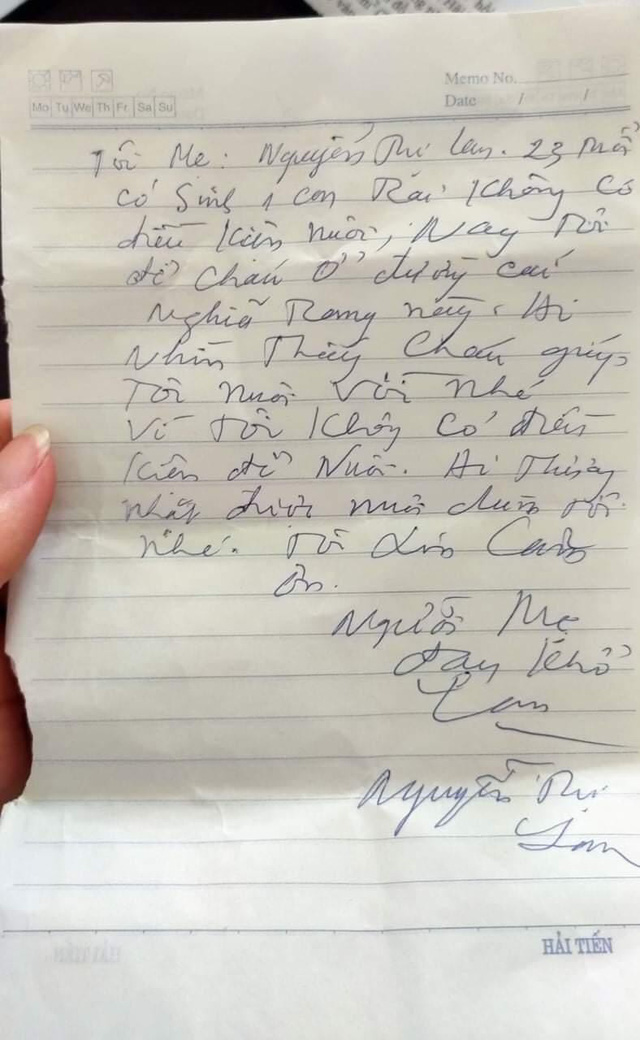 Memo No.
Mo Tu We Th Fr Sa Su
Date / /
Tôi Mẹ: Nguyễn Thị Lan. 23 tuổi
có Sinh 1 con Rai không có
điều kiện nuôi, Nay Tôi
để cháu Ở đường cái
Nghĩa Trang này. Ai
Nhìn Thấy Cháu giúp
Tôi nuôi Với nhé
Vì Tôi không có điều
kiện để Nuôi. Ai
nhặt được nuôi dùm tôi
nhé. Tôi Xin Cảm
Ơn.
Người Mẹ
đau khổ
Lan
Nguyễn Thị
Lan
HẢI TIẾN